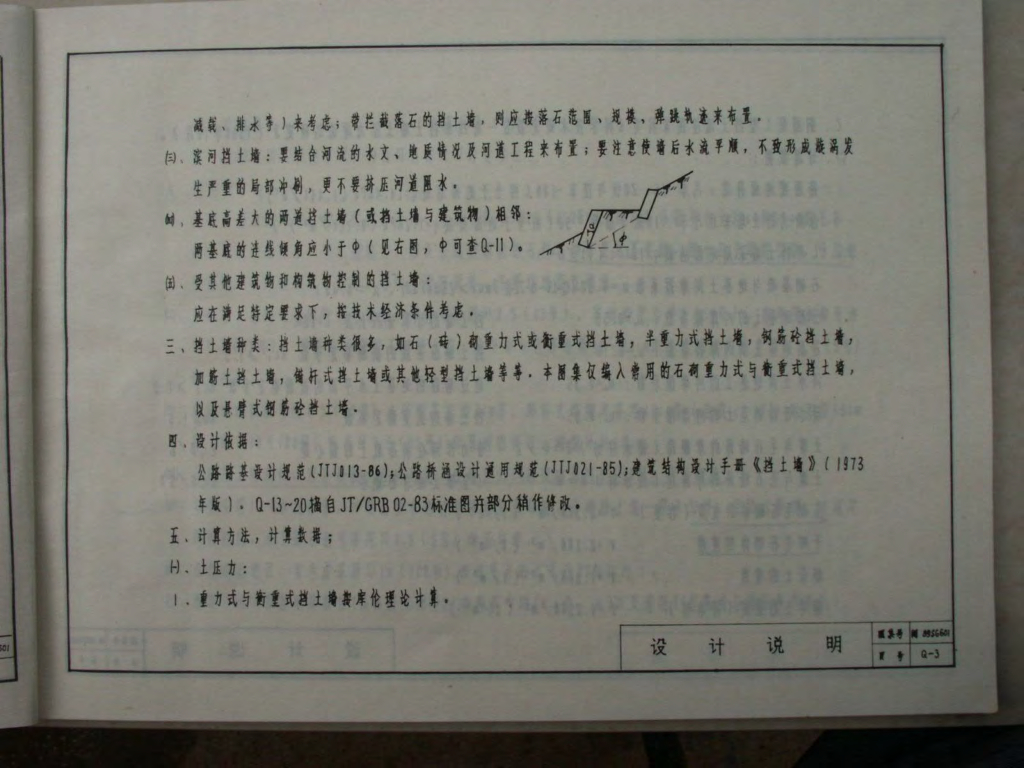 减载、排水等)来考虑;带拦截落石的挡土墙,则应按落石范围、规模、弹跳轨迹来布置。
㈢、滨河挡土墙:要结合河流的水文、地质情况及河道工程来布置;要注意使墙后水流平顺,不致形成漩涡发
生严重的局部冲刷,更不要挤压河道阻水。
㈣、基底高差大的两道挡土墙(或挡土墙与建筑物)相邻:
两基底的连线倾角应小于φ(见右图,φ可查Q-11)。
φ
㈤、受其他建筑物和构筑物控制的挡土墙:
应在满足特定要求下,按技术经济条件考虑。
三、挡土墙种类:挡土墙种类很多,如石(砖)砌重力式或衡重式挡土墙,半重力式挡土墙,钢筋砼挡土墙,
加筋土挡土墙,锚杆式挡土墙或其他轻型挡土墙等等。本图集仅编入常用的石砌重力式与衡重式挡土墙,
以及悬臂式钢筋砼挡土墙。
四、设计依据:
公路路基设计规范(JTJ013-86);公路桥涵设计通用规范(JTJ021-85);建筑结构设计手册《挡土墙》(1973
年版)。Q-13~20摘自JT/GRB 02-83标准图并部分稍作修改。
五、计算方法,计算数据;
㈠、土压力:
1、重力式与衡重式挡土墙按库伦理论计算。
设 计 说 明
图集号
页 号 Q-3